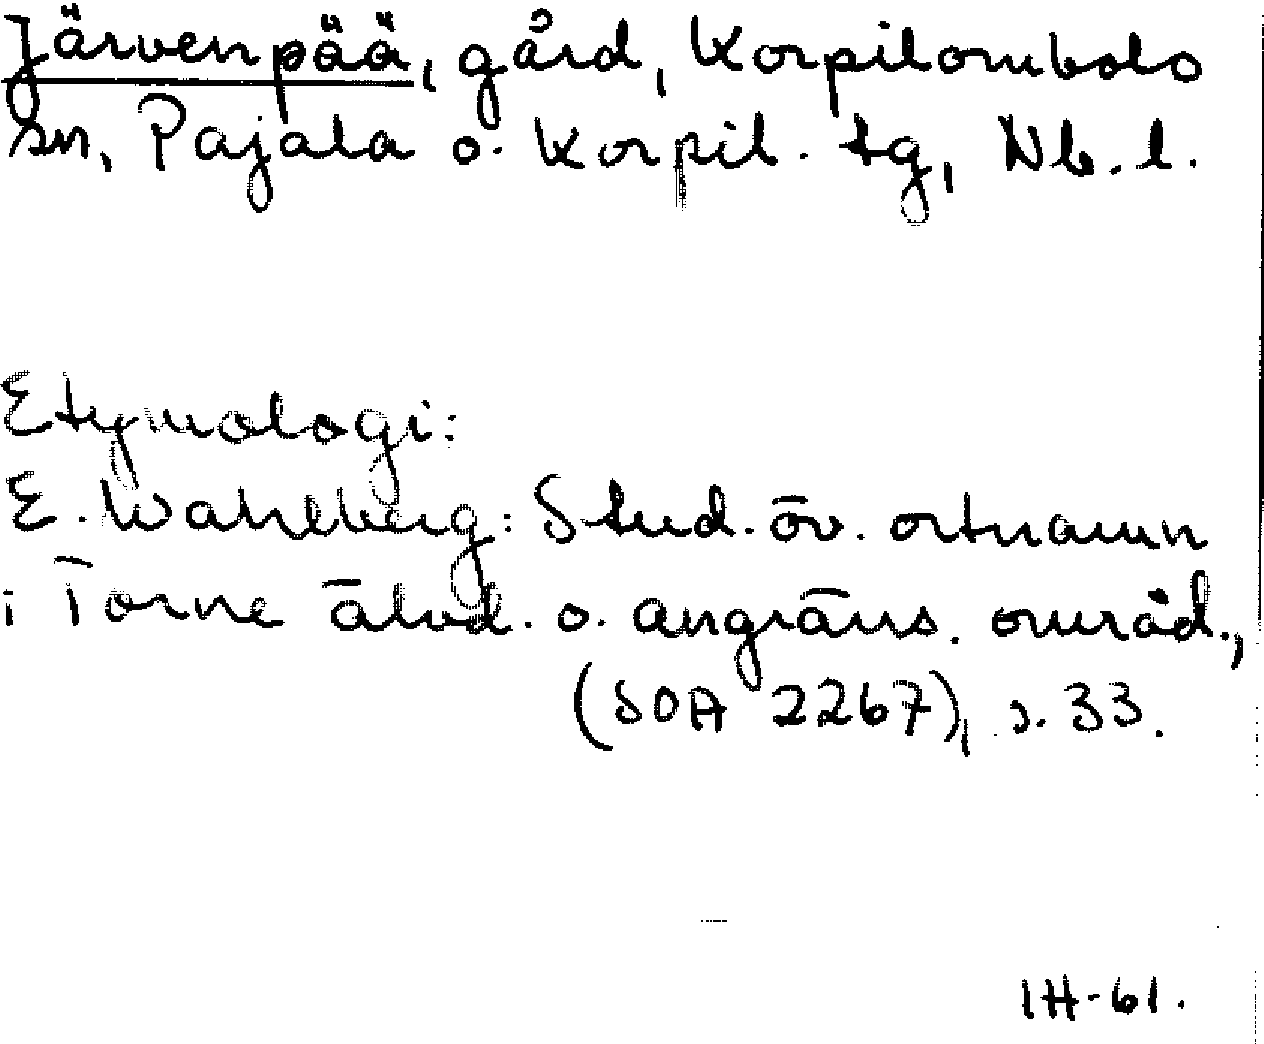 Järvenpää, gård, Korpilombolo
sn, Pajala o. Korpil. tg, Nb. l.
Etymologi:
E. Wahlberg: Stud. öv. ortnamn
i Torne älvd. o. angräns. områd.,
(SOA 2267), s. 33.
IH-61.